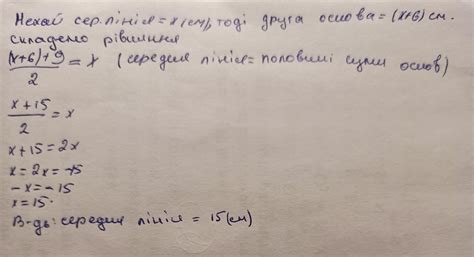 Нехай сер. лінія = x (см), тоді друга основа = (x+6) см.
складемо рівняння
(x+6)+9/2 = x (середня лінія = половині суми основ)
x+15/2 = x
x+15 = 2x
x = 2x = -15
-x = -15
x = 15.
В-дь: середня лінія = 15 (см)